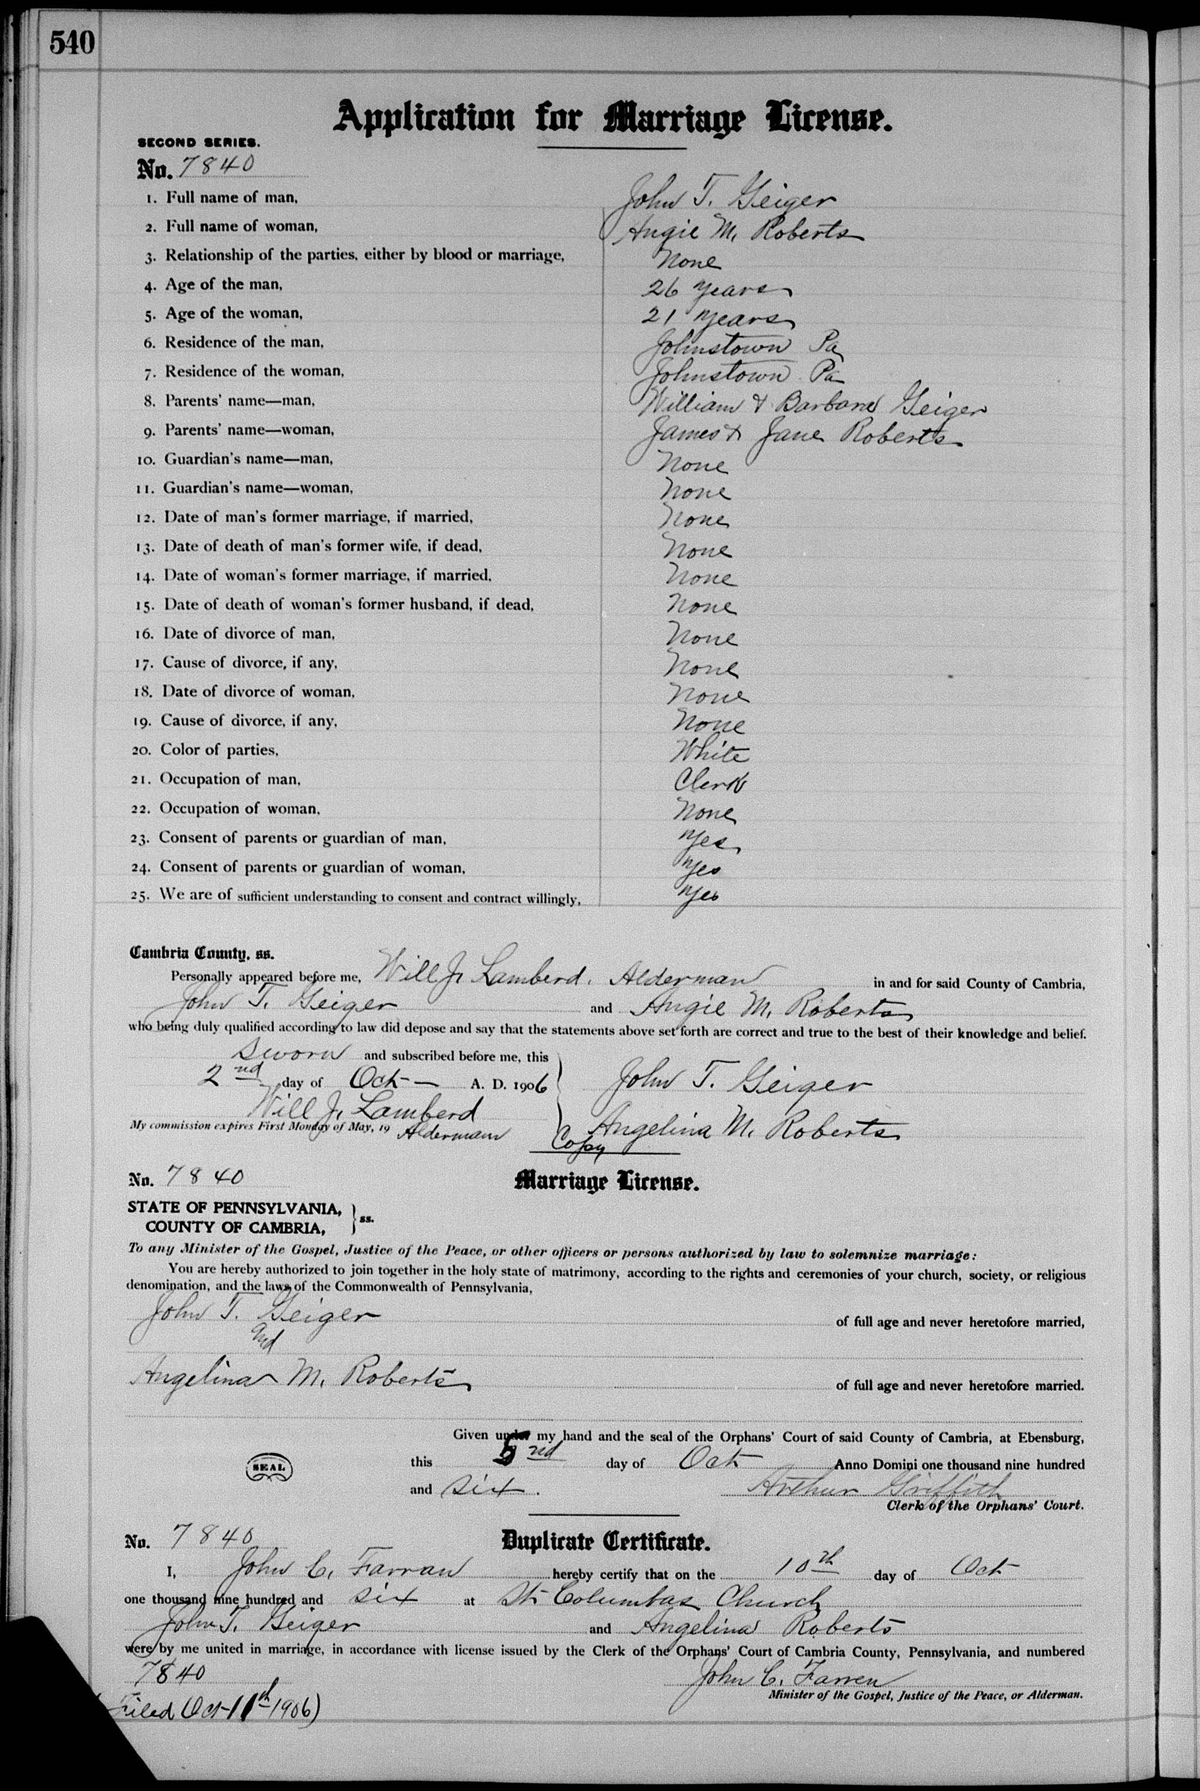 540
Application for Marriage License.
SECOND SERIES.
No. 7840
1. Full name of man, John T. Geiger
2. Full name of woman, Angie M. Roberts
3. Relationship of the parties, either by blood or marriage, None
4. Age of the man, 26 years
5. Age of the woman, 21 years
6. Residence of the man, Johnstown Pa
7. Residence of the woman, Johnstown Pa
8. Parents' name—man, William & Barbara Geiger
9. Parents' name—woman, James & Jane Roberts
10. Guardian's name—man, None
11. Guardian's name—woman, None
12. Date of man's former marriage, if married, None
13. Date of death of man's former wife, if dead, None
14. Date of woman's former marriage, if married, None
15. Date of death of woman's former husband, if dead, None
16. Date of divorce of man, None
17. Cause of divorce, if any, None
18. Date of divorce of woman, None
19. Cause of divorce, if any, None
20. Color of parties, White
21. Occupation of man, Clerk
22. Occupation of woman, None
23. Consent of parents or guardian of man, Yes
24. Consent of parents or guardian of woman, Yes
25. We are of sufficient understanding to consent and contract willingly, Yes
Cambria County, ss.
Personally appeared before me, Will J. Lamberd, Alderman in and for said County of Cambria,
John T. Geiger and Angie M. Roberts
who being duly qualified according to law did depose and say that the statements above set forth are correct and true to the best of their knowledge and belief.
Sworn and subscribed before me, this
2nd day of Oct— A. D. 1906 John T. Geiger
Will J. Lamberd
My commission expires First Monday of May, 19 Alderman Angelina M. Roberts
Copy
No. 7840 Marriage License.
STATE OF PENNSYLVANIA,
COUNTY OF CAMBRIA, } ss.
To any Minister of the Gospel, Justice of the Peace, or other officers or persons authorized by law to solemnize marriage:
You are hereby authorized to join together in the holy state of matrimony, according to the rights and ceremonies of your church, society, or religious
denomination, and the laws of the Commonwealth of Pennsylvania,
John T. Geiger of full age and never heretofore married,
and
Angelina M. Roberts of full age and never heretofore married.
Given under my hand and the seal of the Orphans' Court of said County of Cambria, at Ebensburg,
SEAL this 3rd day of Oct Anno Domini one thousand nine hundred
and six. Arthur Griffith
Clerk of the Orphans' Court.
No. 7840 Duplicate Certificate.
I, John C. Farran hereby certify that on the 10th day of Oct
one thousand nine hundred and six at St Columbas Church
John T. Geiger and Angelina Roberts
were by me united in marriage, in accordance with license issued by the Clerk of the Orphans' Court of Cambria County, Pennsylvania, and numbered
7840 John C. Farren
Minister of the Gospel, Justice of the Peace, or Alderman.
Filed Oct-11th-1906)